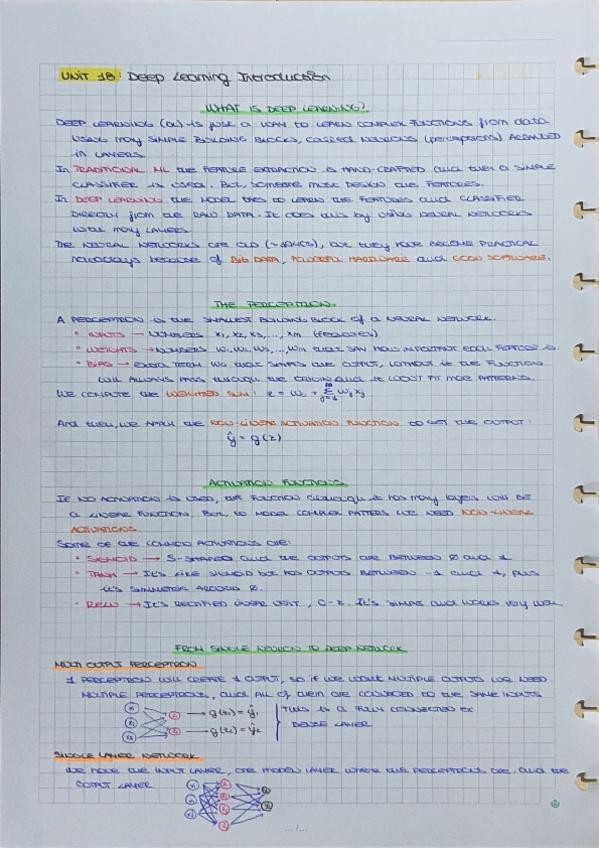 UNIT 18: Deep Learning Introduction
WHAT IS DEEP LEARNING?
DEEP LEARNING (DL) is just a WAY TO LEARN COMPLEX FUNCTIONS from data
USING many SIMPLE BUILDING BLOCKS, CALLED NEURONS (perceptrons) ARRANGED
in LAYERS.
In TRADITIONAL ML the FEATURE EXTRACTION is HAND-CRAFTED and then a SIMPLE
CLASSIFIER is USED. But, SOMEONE MUST DESIGN the FEATURES.
In DEEP LEARNING the MODEL tries to LEARN the FEATURES and CLASSIFIER
DIRECTLY from the RAW DATA. It does this by USING NEURAL NETWORKS
with many LAYERS.
THE NEURAL NETWORKS are OLD, but they HAVE BECOME PRACTICAL
nowadays because of BIG DATA, POWERFUL HARDWARE and GOOD SOFTWARE.
THE PERCEPTRON
A PERCEPTRON is the SMALLEST BUILDING BLOCK of a NEURAL NETWORK.
• INPUTS → NUMBERS x1, x2, x3, ..., xm (features)
• WEIGHTS → NUMBERS ..., wm that SAY HOW IMPORTANT EACH FEATURE is.
• BIAS → EXTRA TERM w0 that SHIFTS the OUTPUT, WITHOUT it the FUNCTION
WILL ALWAYS PASS through the ORIGIN and it WON'T FIT MORE PATTERNS.
WE COMPUTE the WEIGHTED SUM: z = w0 + Σ wj xj
And then, we APPLY the NON-LINEAR ACTIVATION FUNCTION to GET the OUTPUT:
ŷ = g(z)
ACTIVATION FUNCTIONS
If NO ACTIVATION is USED, the FUNCTION although it has many layers WILL BE
a LINEAR FUNCTION. But, to MODEL COMPLEX PATTERNS WE NEED NON-LINEAR
ACTIVATIONS.
Some of the COMMON ACTIVATIONS are:
• SIGMOID → S-SHAPED and the OUTPUTS ARE BETWEEN 0 and 1
• TANH → It's LIKE SIGMOID but HAS OUTPUTS BETWEEN -1 and 1, PLUS
it's SYMMETRIC AROUND 0.
• ReLU → It's RECTIFIED LINEAR UNIT, 0-z. It's SIMPLE and WORKS VERY WELL.
FROM SINGLE NEURON TO DEEP NETWORK
MULTI OUTPUT PERCEPTRON
1 PERCEPTRON WILL CREATE 1 OUTPUT, SO if WE WOULD MULTIPLE OUTPUTS WE NEED
MULTIPLE PERCEPTRONS, and ALL of them are CONNECTED to the SAME INPUTS
x1 → g(z1) = ŷ1 THIS is a FULLY CONNECTED or
x2 → g(z2) = ŷ2 DENSE LAYER
x3
SINGLE LAYER NETWORK
We HAVE the INPUT LAYER, ONE LAYER WHERE the PERCEPTRONS are, and the
OUTPUT LAYER.
.../...